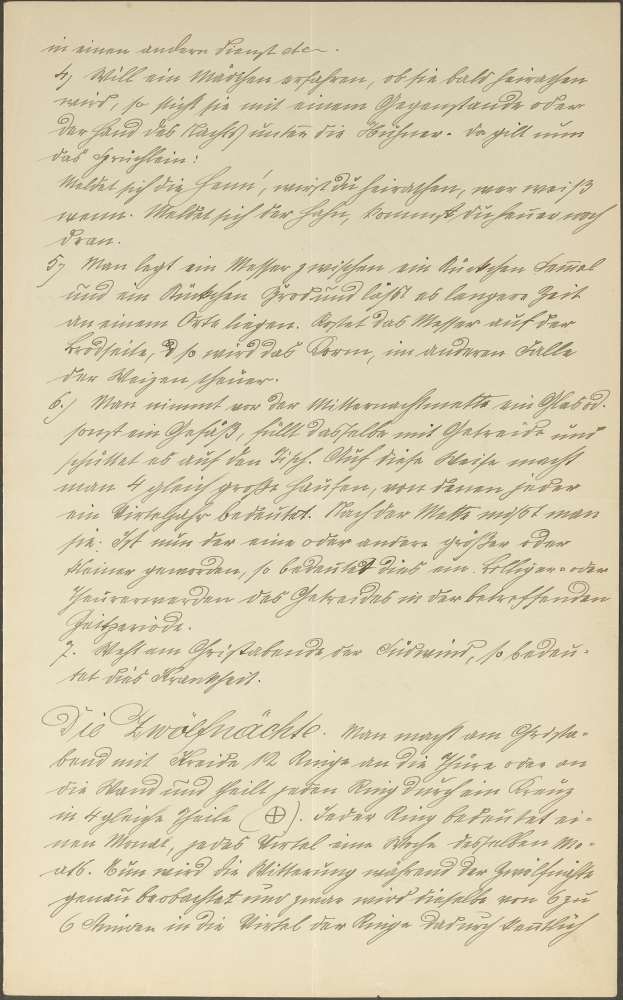 in einen andern Dienst etc.
4, Will ein Mädchen erfahren, ob sie bald heirathen
wird, so sticht sie mit einem Gegenstande oder
der Hand des Nachts unter die Hühner. Da gilt nun
das Sprüchlein:
Meldet sich die Henn', wirst du heirathen, wer weiß
wenn. Meldet sich der Hahn, kommst du heuer noch
dran.
5, Man legt ein Messer zwischen ein Stückchen Semel
und ein Stückchen Brod und läßt es längere Zeit
an einem Orte liegen. Rostet das Messer auf der
Brodseite, so wird das Korn, im anderen Falle
der Weizen theuer.
6.) Man nimmt vor der Mitternachtmette ein Glas od.
sonst ein Gefäß, füllt dasselbe mit Getreide und
schüttet es auf den Tisch. Auf diese Weise macht
man 4 gleich große Haufen, von denen jeder
ein Virteljahr bedeutet. Nach der Mette mißt man
sie. Ist nun der eine oder andere größer oder
kleiner geworden, so bedeutet dies ein Billiger- oder
Theurerwerden des Getreides in der betreffenden
Zeitperiode.
7. Weht am Christabende der Südwind, so bedeu-
tet dies Krankheit.
Die Zwölfnächte. Man macht am Christa-
bend mit Kreide 12 Ringe an die Thüre oder an
die Wand und theilt jeden Ring durch ein Kreuz
in 4 gleiche Theile (⊕). Jeder Ring bedeutet ei-
nen Monat, jedes Virtel eine Woche desselben Mo-
ats. Nun wird die Witterung während der Zwölfnächte
genau beobachtet und zwar wird dieselbe von 6 zu
6 Stunden in die Virtel der Ringe dadurch kentlich